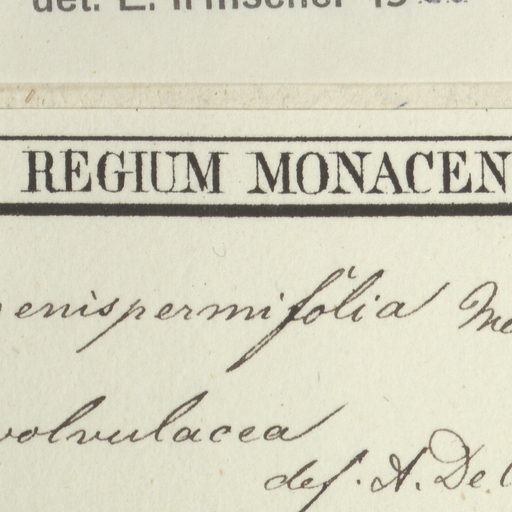 det. E. Irmscher 19
REGIUM MONACEN
enispermifolia
volvulacea
def. A. De